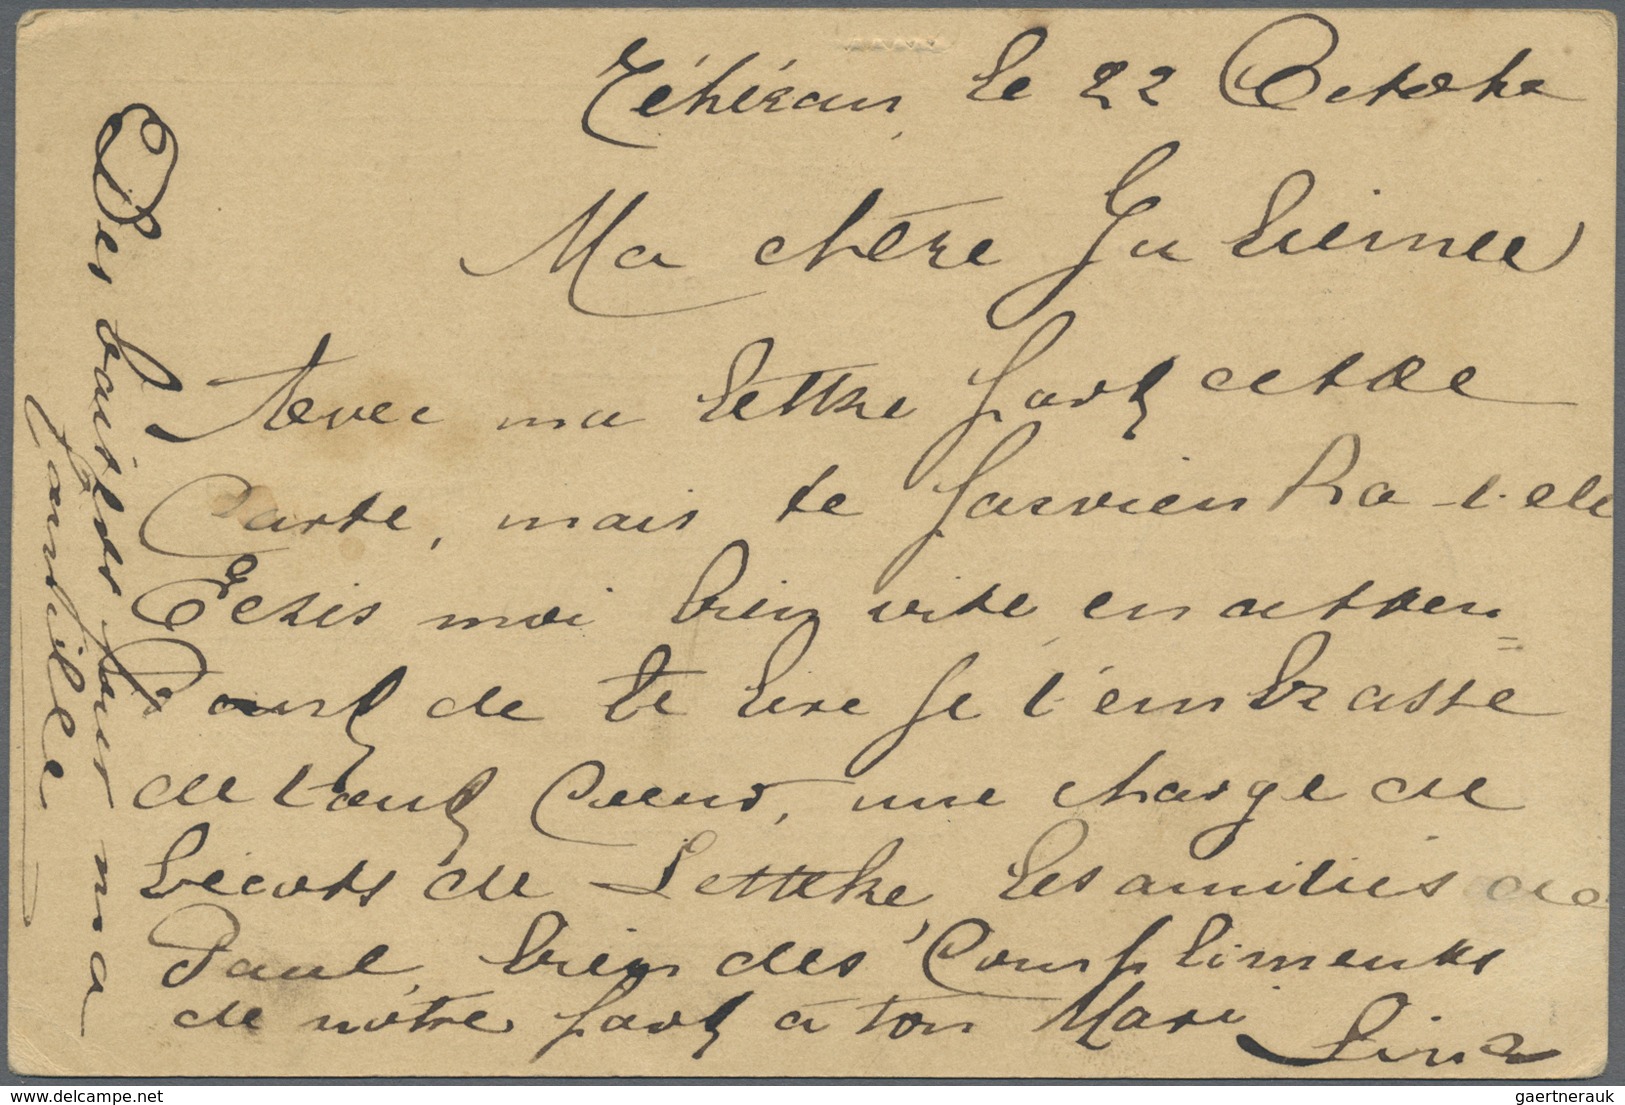 Téhéran, le 22 Octobre
Ma chère Julienne
Avec ma lettre part cette
Carte, mais te parviendra-t-elle
Ecris moi bien vite, en atten=
dant de te lire je t'embrasse
de tout Coeur, une charge de
bécots de les amitiés de
Paul, bien des Compliments
de nôtre part à ton Mari Lina
Des baisers pour ma
famille
delcampe.net
gaertnerauk